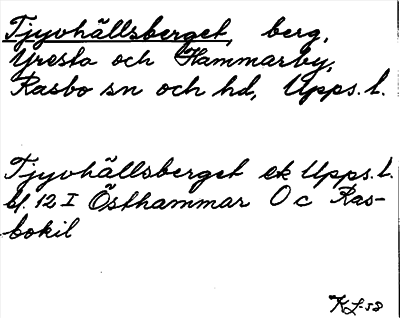 Tjyvhällsberget, berg,
Yresta och Hammarby,
Rasbo sn och hd, Upps. l.
Tjyvhällsberget ek Upps. l.
bl. 12 I Östhammar O c Ras-
bokil
KL-58